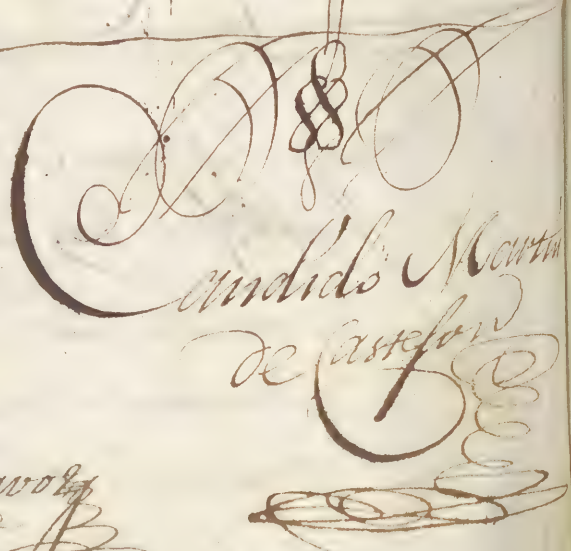 Candido Martin
de Castejon